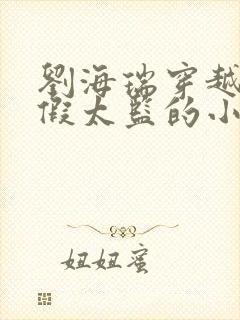 劉海瑞穿越
假太監的小
妞妞蜜